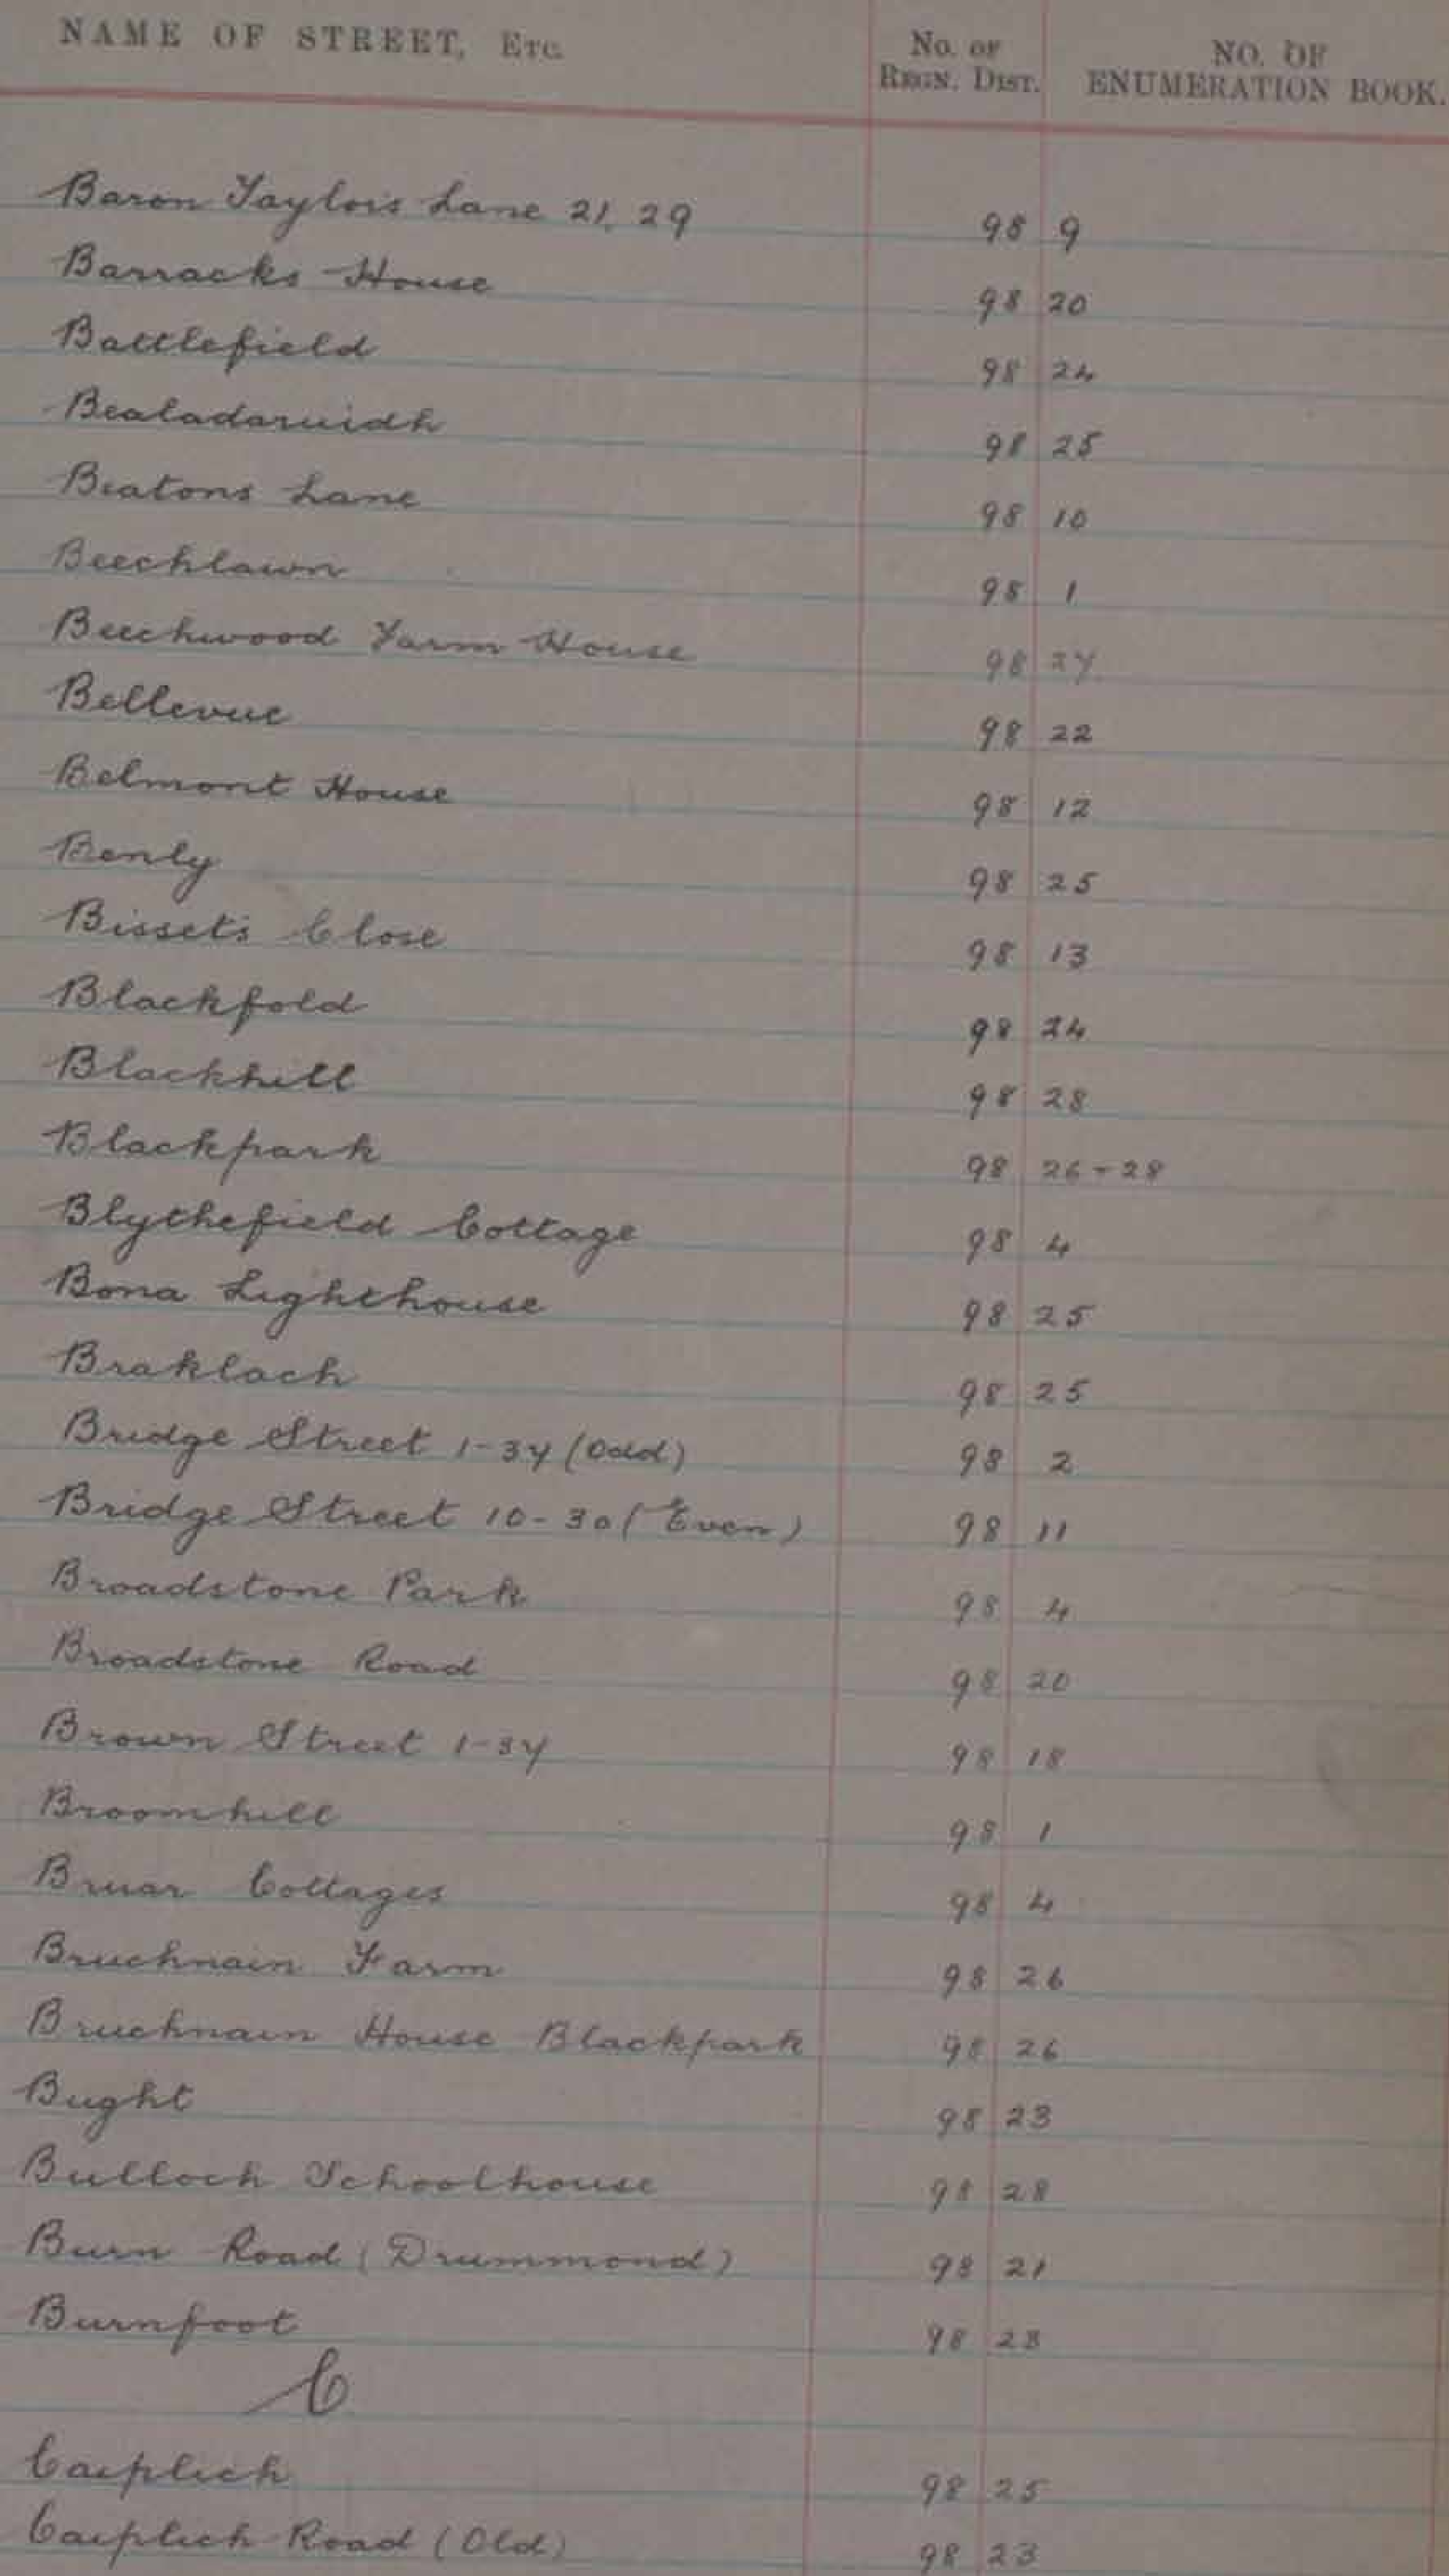 NAME OF STREET, ETC. No. OF REGN. DIST. NO. OF ENUMERATION BOOK.
Baron Taylors Lane 21, 29 98 9
Barracks House 98 20
Battlefield 98 24
Bealadaruidh 98 25
Beatons Lane 98 10
Beechlawn 98 1
Beechwood Farm House 98 27
Bellevue 98 22
Belmont House 98 12
Benly 98 25
Bissets Close 98 13
Blackfold 98 24
Blackhill 98 28
Blackpark 98 26-28
Blythefield Cottage 98 4
Bona Lighthouse 98 25
Braklach 98 25
Bridge Street 1-37 (Odd) 98 2
Bridge Street 10-30 (Even) 98 11
Broadstone Park 98 4
Broadstone Road 98 20
Brown Street 1-37 98 18
Broomhill 98 1
Bruar Cottages 98 4
Bruchnain Farm 98 26
Bruchnain House Blackpark 98 26
Bught 98 23
Bulloch Schoolhouse 98 28
Burn Road (Drummond) 98 21
Burnfoot 98 28
C
Caiplich 98 25
Caiplich Road (Old) 98 23